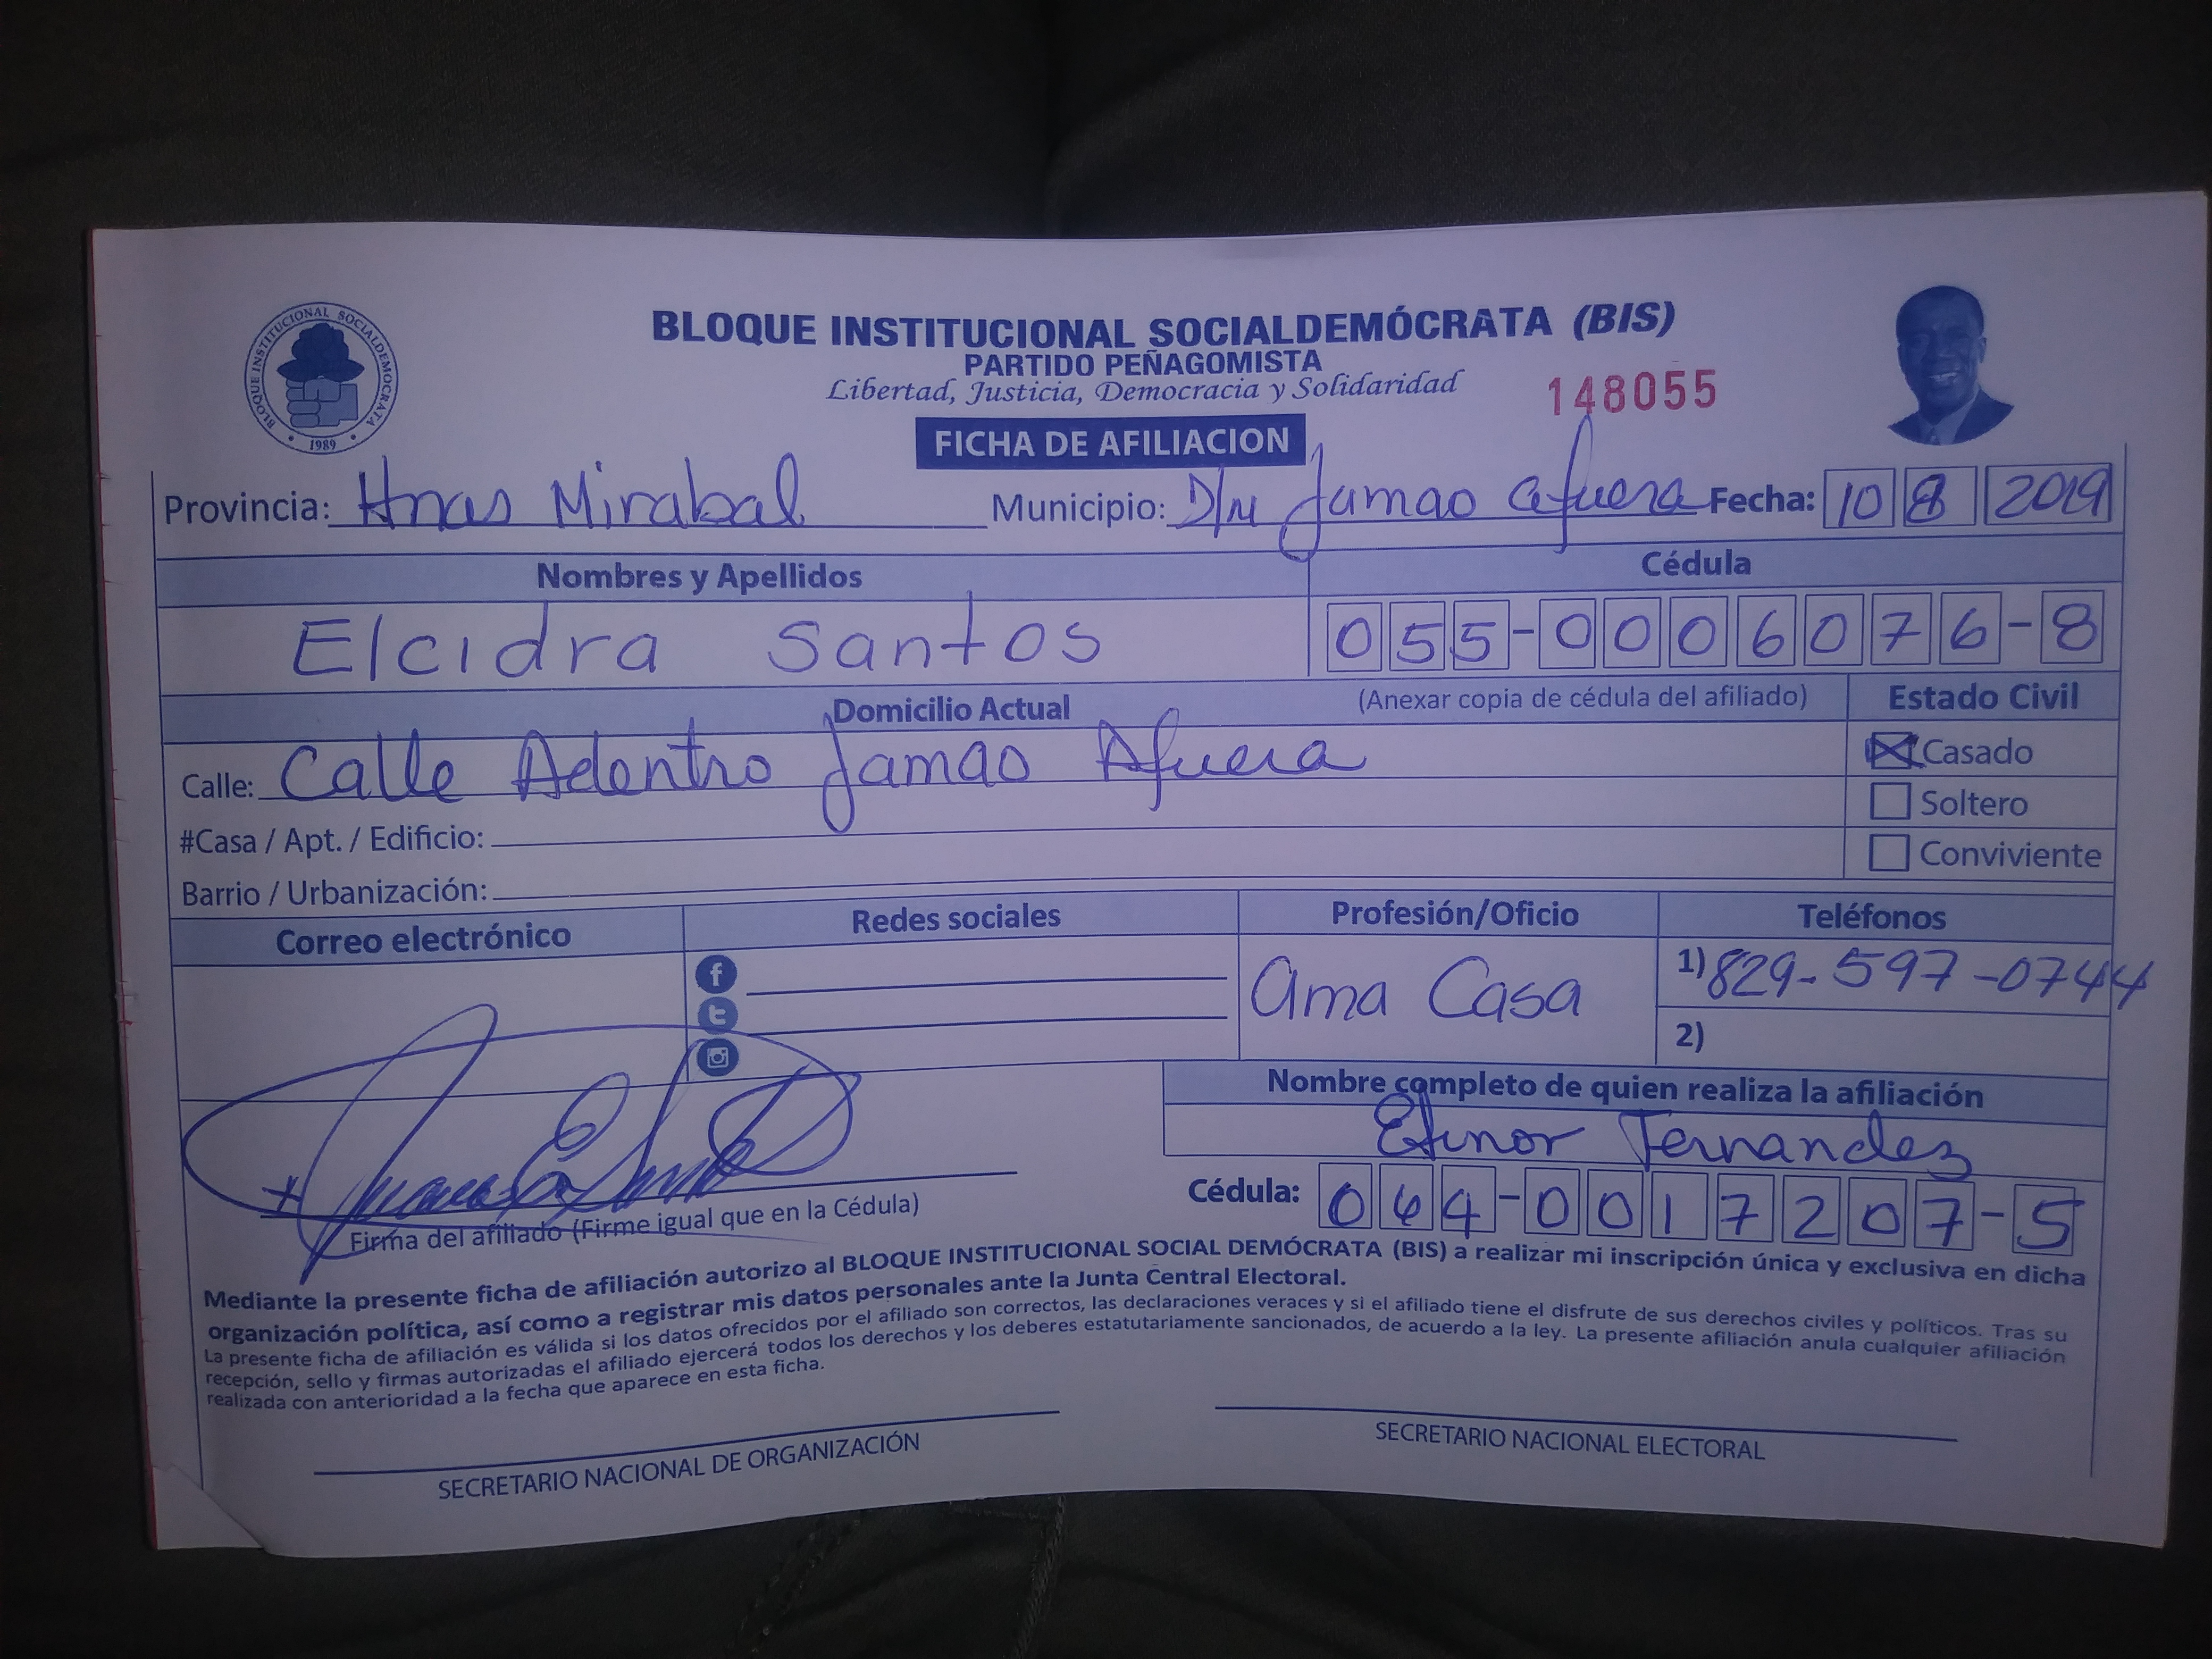 BLOQUE INSTITUCIONAL SOCIALDEMÓCRATA
1989
BLOQUE INSTITUCIONAL SOCIALDEMÓCRATA (BIS)
PARTIDO PEÑAGOMISTA
Libertad, Justicia, Democracia y Solidaridad
148055
FICHA DE AFILIACION
Provincia: Hnas Mirabal Municipio: D/M Jamao afuera Fecha: 10 8 2019
Nombres y Apellidos Cédula
Elcidra Santos 055-0006076-8
Domicilio Actual (Anexar copia de cédula del afiliado) Estado Civil
Calle: Calle Adentro Jamao Afuera
Casado
Soltero
#Casa / Apt. / Edificio:
Conviviente
Barrio / Urbanización:
Correo electrónico Redes sociales Profesión/Oficio Teléfonos
ama Casa 1) 829-597-0744
2)
Nombre completo de quien realiza la afiliación
Fernandez
Cédula: 064-0017207-5
Firma del afiliado (Firme igual que en la Cédula)
Mediante la presente ficha de afiliación autorizo al BLOQUE INSTITUCIONAL SOCIAL DEMÓCRATA (BIS) a realizar mi inscripción única y exclusiva en dicha
organización política, así como a registrar mis datos personales ante la Junta Central Electoral.
La presente ficha de afiliación es válida si los datos ofrecidos por el afiliado son correctos, las declaraciones veraces y si el afiliado tiene el disfrute de sus derechos civiles y políticos. Tras su
recepción, sello y firmas autorizadas el afiliado ejercerá todos los derechos y los deberes estatutariamente sancionados, de acuerdo a la ley. La presente afiliación anula cualquier afiliación
realizada con anterioridad a la fecha que aparece en esta ficha.
SECRETARIO NACIONAL DE ORGANIZACIÓN
SECRETARIO NACIONAL ELECTORAL